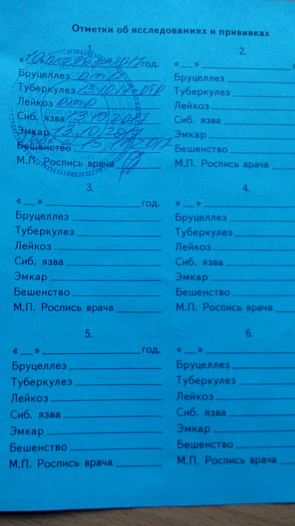 Отметки об исследованиях и прививках
1.
« год.
Бруцеллез отр
Туберкулез 13.10.17 отр
Лейкоз отр
Сиб. язва 13.10.2017
Эмкар 13.10.2017
Бешенство
М.П. Роспись врача
2.
« »
Бруцеллез
Туберкулез
Лейкоз
Сиб. язва
Эмкар
Бешенство
М.П. Роспись врача
3.
« » год.
Бруцеллез
Туберкулез
Лейкоз
Сиб. язва
Эмкар
Бешенство
М.П. Роспись врача
4.
« »
Бруцеллез
Туберкулез
Лейкоз
Сиб. язва
Эмкар
Бешенство
М.П. Роспись врача
5.
« » год.
Бруцеллез
Туберкулез
Лейкоз
Сиб. язва
Эмкар
Бешенство
М.П. Роспись врача
6.
« »
Бруцеллез
Туберкулез
Лейкоз
Сиб. язва
Эмкар
Бешенство
М.П. Роспись врача